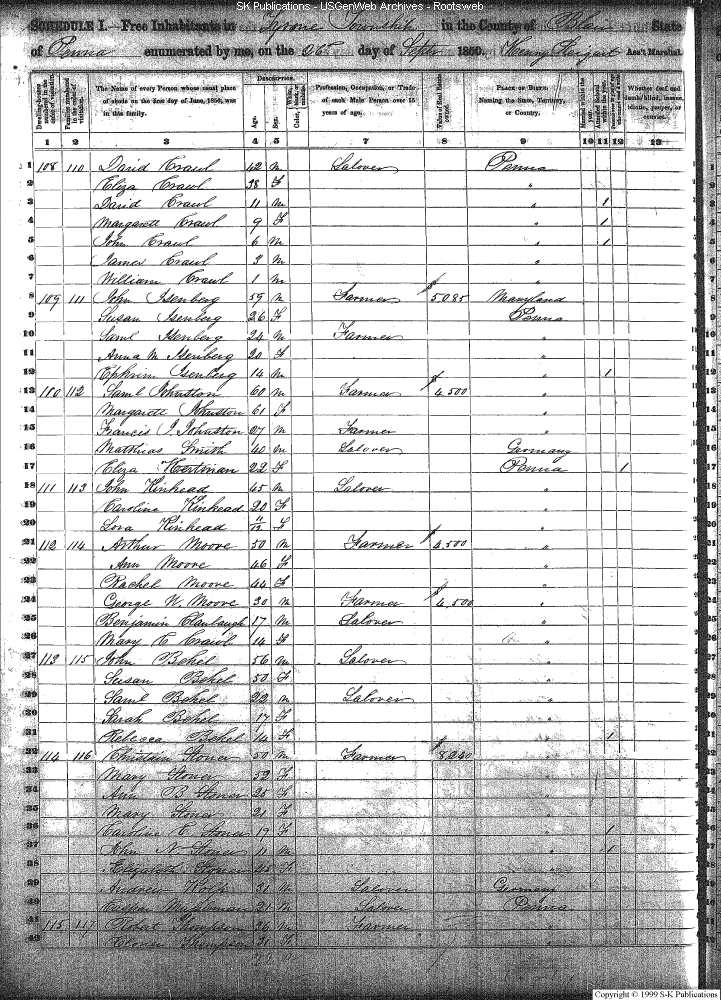 SK Publications - USGenWeb Archives - Rootsweb
SCHEDULE I.—Free Inhabitants in Tyrone Township in the County of Blair State
of Penna enumerated by me, on the 26 day of Septr 1850. Ass't Marshal.
Dwelling-houses numbered in the order of visitation. Families numbered in the order of visitation. The Name of every Person whose usual place of abode on the first day of June, 1850, was in this family. DESCRIPTION. Age. Sex. White, black, or mulatto. Color Profession, Occupation, or Trade of each Male Person over 15 years of age. Value of Real Estate owned. PLACE OF BIRTH. Naming the State, Territory, or Country. Married within the year. Attended School within the year. Whether deaf and dumb, blind, insane, idiotic, pauper, or convict.
1 2 3 4 5 6 7 8 9 10 11 12 13
1 108 110 David Crawl 42 M Labover Penna
2 Eliza Crawl 38 F "
3 David Crawl 11 M " 1
4 Margarett Crawl 9 F " 1
5 John Crawl 6 M " 1
6 James Crawl 3 M "
7 William Crawl 1 M "
8 109 111 John Isenberg 59 M Farmer $5085 Maryland
9 Susan Isenberg 26 F Penna
10 Saml Isenberg 24 M Farmer "
11 Anna M Isenberg 20 F "
12 Ephrim Isenberg 14 M " 1
13 110 112 Saml Johnston 60 M Farmer $4,500 "
14 Margarett Johnston 61 F "
15 Francis J. Johnston 27 M Farmer "
16 Matthias Smith 40 M Labover Germany
17 Eliza Hertman 22 F Penna 1
18 111 113 John Kinhead 45 M Labover "
19 Caroline Kinhead 20 F "
20 Lora Kinhead 11/12 F "
21 112 114 Arthur Moore 50 M Farmer $4,500 "
22 Ann Moore 46 F "
23 Rachel Moore 44 F "
24 George W. Moore 30 M Farmer $4,500 "
25 Benjamin Clanbaugh 17 M Labover "
26 Mary E Crawl 14 F "
27 113 115 John Bohel 56 M Labover "
28 Susan Bohel 50 F "
29 Saml Bohel 22 M Labover "
30 Sarah Bohel 17 F "
31 Rebecca Bohel 14 F " 1
32 114 116 Christain Stoner 50 M Farmer $8,240 "
33 Mary Stoner 52 F "
34 Ann B Stoner 25 F "
35 Mary Stoner 21 F "
36 Caroline C Stoner 19 F " 1
37 John N Stoner 11 M " 1
38 Elizabeth Stoner 45 F "
39 Andrew 31 M Labover Germany
40 Musselman 21 M Labover Penna
41 115 117 Robert Thompson 36 M Farmer "
42 Thompson 31 F "
Copyright © 1999 S-K Publications